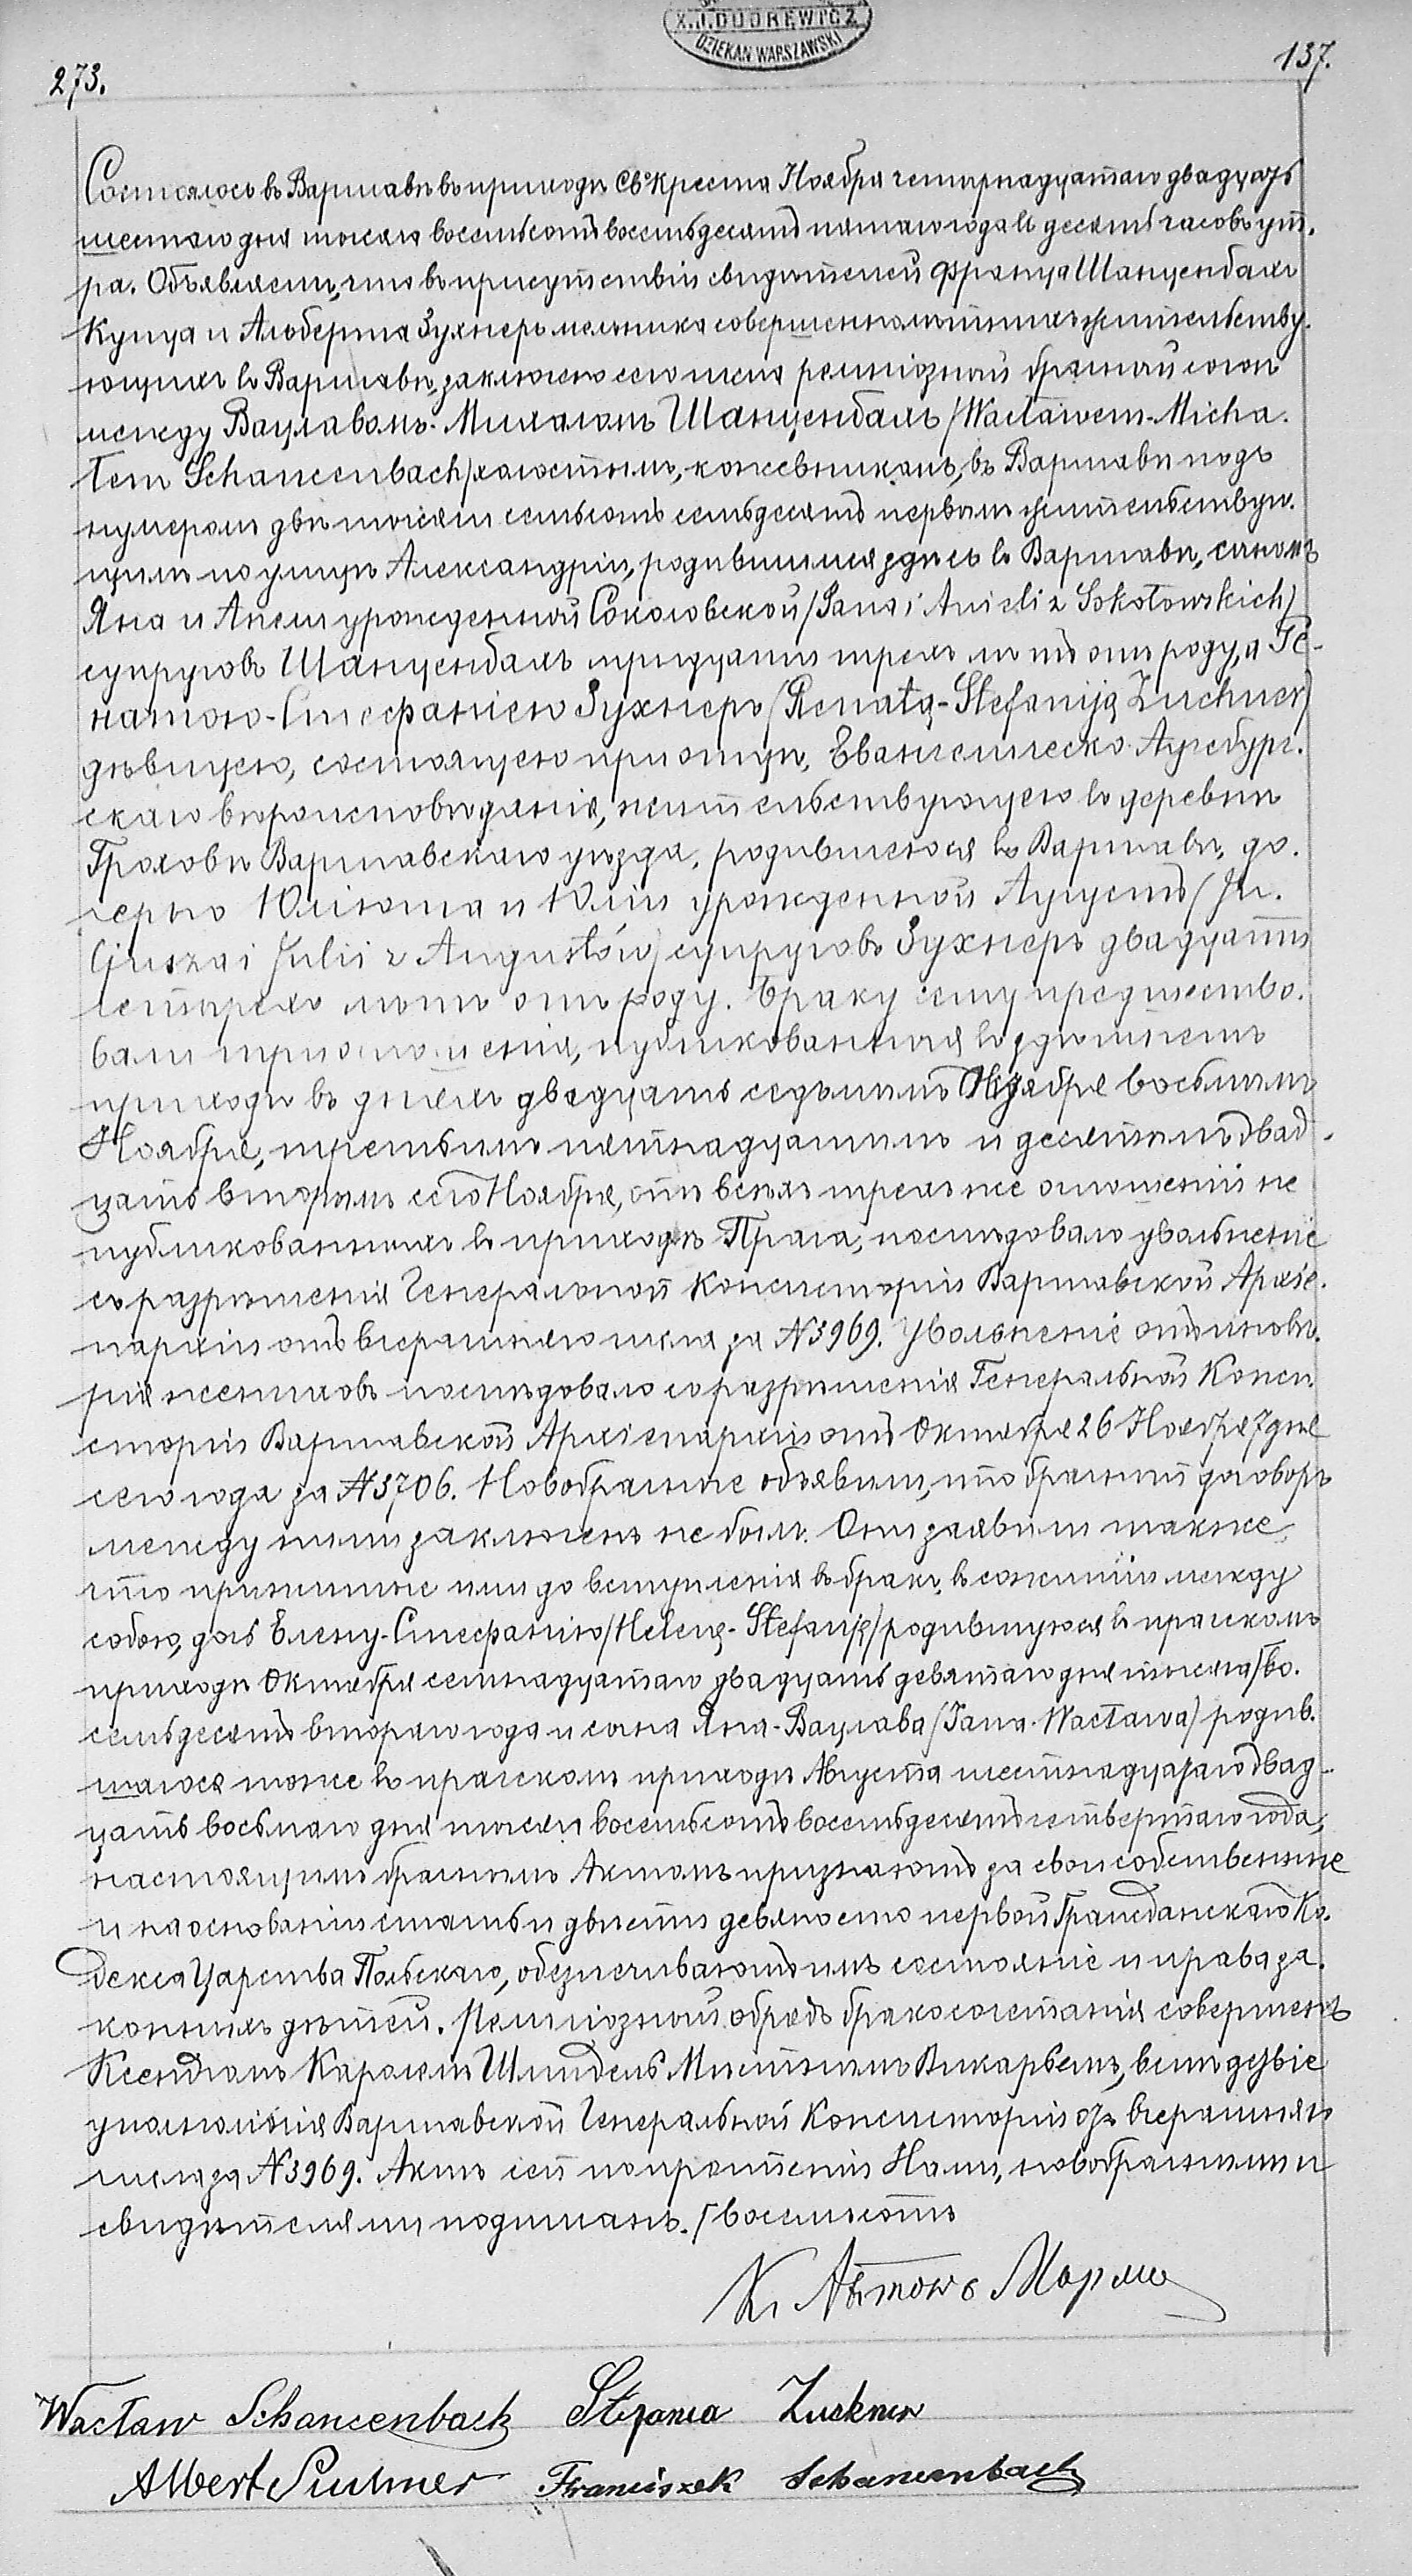 X.J. DUDREWICZ
DZIEKAN WARSZAWSKI
273.
137.
Состоялось въ Варшавѣ въ приходѣ Св. Креста Ноября четырнадцатаго двадцать
шестаго дня тысяча восемьсотъ восемьдесятъ пятаго года въ десять часовъ ут.
ра. Объявляемъ, что въ присутствіи свидѣтелей Франца Шанценбахъ
купца и Альберта Зухнеръ мельника совершеннолѣтнихъ жительству.
ющихъ въ Варшавѣ, заключенъ сего числа религіозный брачный союзъ
между Вацлавомъ-Михаломъ Шанценбахъ /Wacławem-Micha.
łem Schancenbach/ холостымъ, кожевникомъ, въ Варшавѣ подъ
нумеромъ двѣ тысячи семьсотъ семьдесятъ первымъ жительствую.
щимъ по улицѣ Александріи, родившимся здѣсь въ Варшавѣ, сыномъ
Яна и Анели урожденной Соколовской /Jana i Anieli z Sokołowskich/
супруговъ Шанценбахъ тридцати трехъ лѣтъ отъ роду, а Ре-
натою-Стефаніею Зухнеръ /Renatą-Stefaniją Zuchner/
дѣвицею, состоящею при отцѣ, Евангелическо-Аугсбург.
скаго вѣроисповѣданія, жительствующею въ деревнѣ
Гроховѣ Варшавскаго уѣзда, родившеюся въ Варшавѣ, до.
черью Юліюша и Юліи урожденной Аугустъ /Ju.
ljusza i Julii z Augustów/ супруговъ Зухнеръ двадцати
четырехъ лѣтъ отъ роду. Браку сему предшество.
вали три оглашенія, публикованныя въ здѣшнемъ
приходѣ въ дняхъ двадцать седьмымъ Октября восьмымъ
Ноября, третьимъ пятнадцатымъ и десятымъ двад.
цать вторымъ сего Ноября, отъ всѣхъ трехъ же оглашеній не
публикованныхъ въ приходѣ Прага, послѣдовало увольненіе
съ разрѣшенія Генеральной Консисторіи Варшавской Архіе.
пархіи отъ вчерашняго числа за N 3969. Увольненіе отъ иновѣ.
рія жениховъ послѣдовало съ разрѣшенія Генеральной Конси.
сторіи Варшавской Архіепархіи отъ Октября 26 Ноября 7 дня
сего года за N 3706. Новобрачные объявили, что брачный договоръ
между ними заключенъ не былъ. Они заявили также
что прижитые ими до вступленія въ бракъ, въ сожитіи между
собою, дочь Елену-Стефанію /Helenę-Stefanję/ родившуюся въ прагскомъ
приходѣ Октября семнадцатаго двадцать девятаго дня тысяча / во.
семьдесятъ втораго года и сына Яна-Вацлава /Jana-Wacława/ родив.
шагося тоже въ прагскомъ приходѣ Августа шестнадцатаго двад-
цать восьмаго дня тысяча восемьсотъ восемьдесятъ четвертаго года,
настоящимъ брачнымъ Актомъ признаютъ за свои собственные
и на основаніи статьи двѣсти девяносто первой Гражданскаго Ко.
декса Царства Польскаго, обезпечиваютъ имъ состояніе и права за.
конныхъ дѣтей. Религіозный обрядъ бракосочетанія совершенъ
Ксендзомъ Каролемъ Шмидель Мѣстнымъ Викарьемъ, вслѣдствіе
уполномочія Варшавской Генеральной Консисторіи отъ вчерашняго
числа за N 3969. Актъ сей по прочтеніи Нами, новобрачными и
свидѣтелями подписанъ. / восемьсотъ
Wacław Schancenbach Stefania Zuchner
Albert Suchner Franciszek Schancenbach